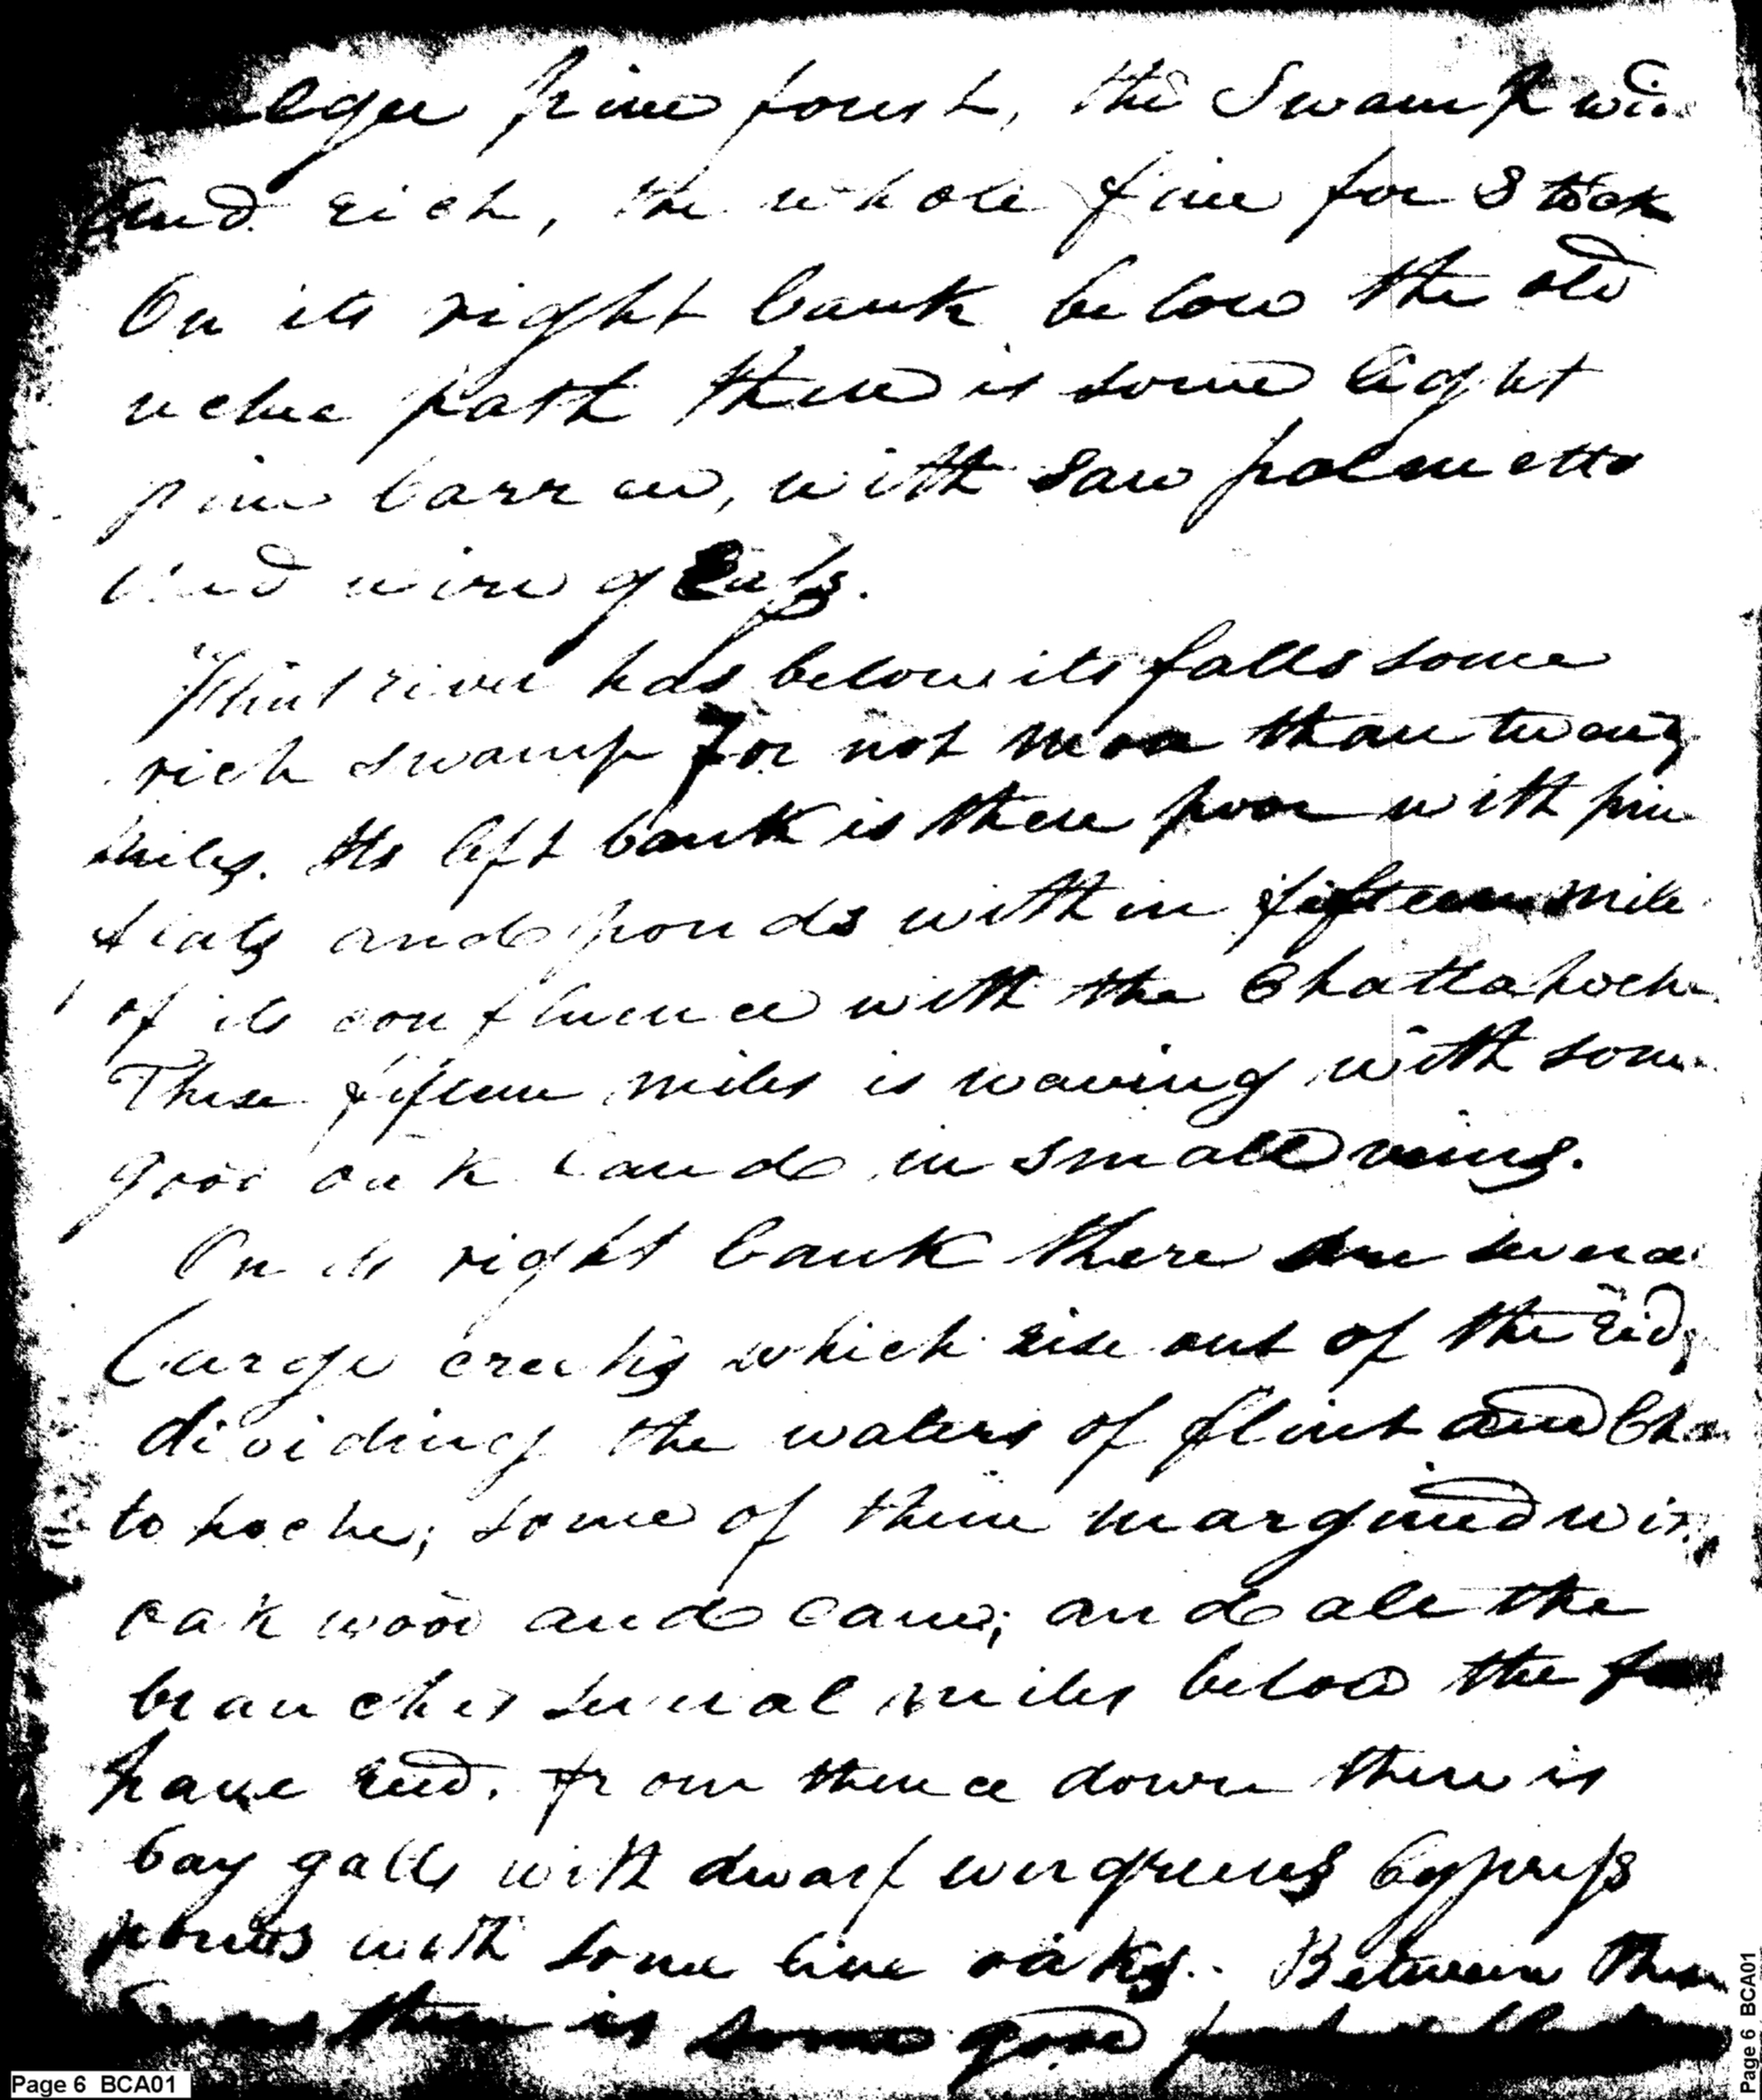 edges pine forest, the Swamp wide
and rich, the whole fine for Stock
On its right bank below the old
uchee path there is some light
pine barren, with saw palmetto
and wire grass.
"Flint river has below its falls some
rich swamp for not more than twenty
miles. Its left bank is there poor with pine
flats and ponds within fifteen mile
of its confluence with the Chattahoche
These fifteen miles is waving with some
good oak land in small veins.
On its right bank there are several
large creeks which rise out of the ridg
dividing the waters of flint and Cha
to hoche; some of them margined with
oak wood and cane; and all the
branches several miles below the
have reed. from thence down there is
bay galls with dwarf evergreens Cypress
ponds with some live oaks. Between these
there is some good
Page 6 BCA01
Page 6 BCA01